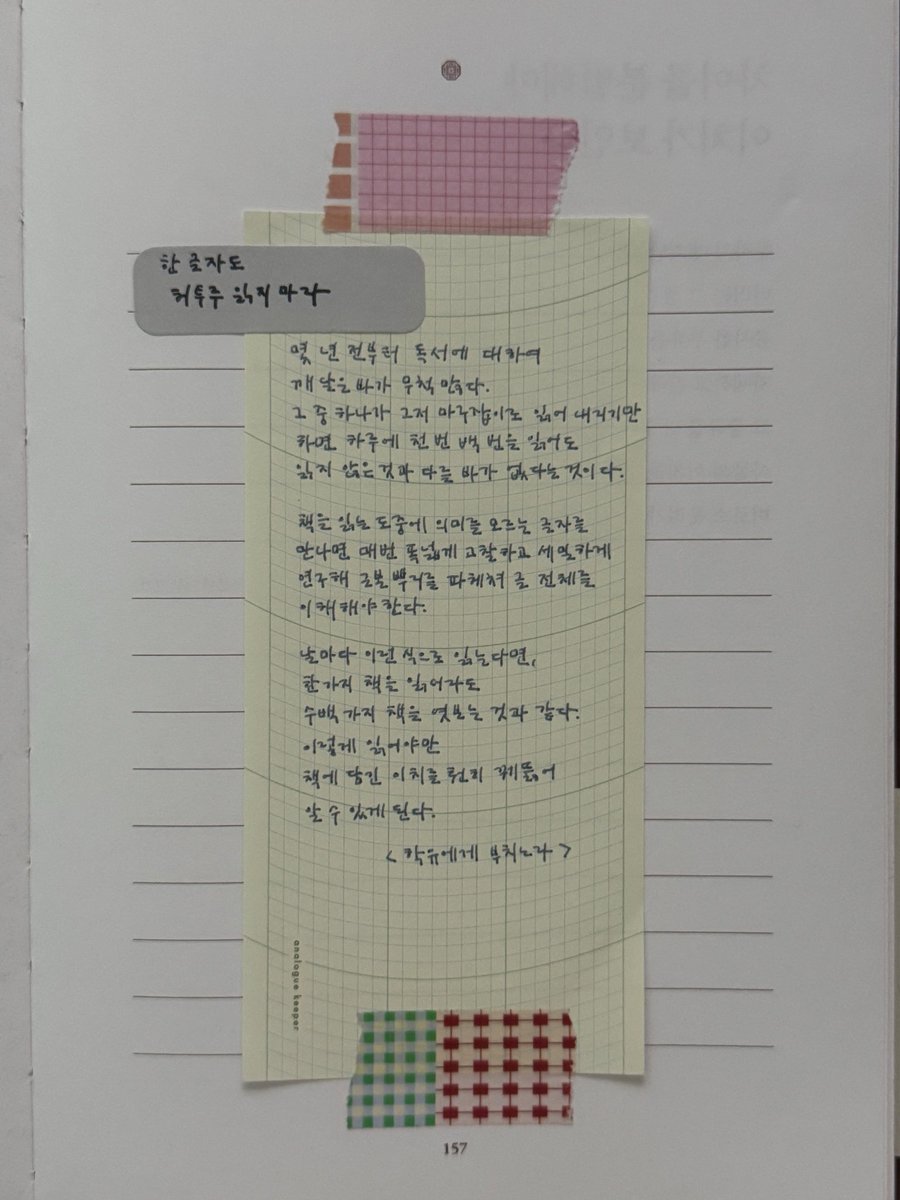 한 글자도
허투루 읽지 마라
몇 년 전부터 독서에 대하여
깨달은 바가 무척 많다.
그 중 하나가 그저 마구잡이로 읽어 내리기만
하면 하루에 천 번 백 번을 읽어도
읽지 않은 것과 다를 바가 없다는 것이다.
책을 읽는 도중에 의미를 모르는 글자를
만나면 매번 폭넓게 고찰하고 세밀하게
연구해 근본 뿌리를 파헤쳐 글 전체를
이해해야 한다.
날마다 이런 식으로 읽는다면,
한 가지 책을 읽어라도
수백 가지 책을 엿보는 것과 같다.
이렇게 읽어야만
책에 담긴 이치를 훤히 꿰뚫어
알 수 있게 된다.
< 학유에게 부치노라 >
analogue keeper
157